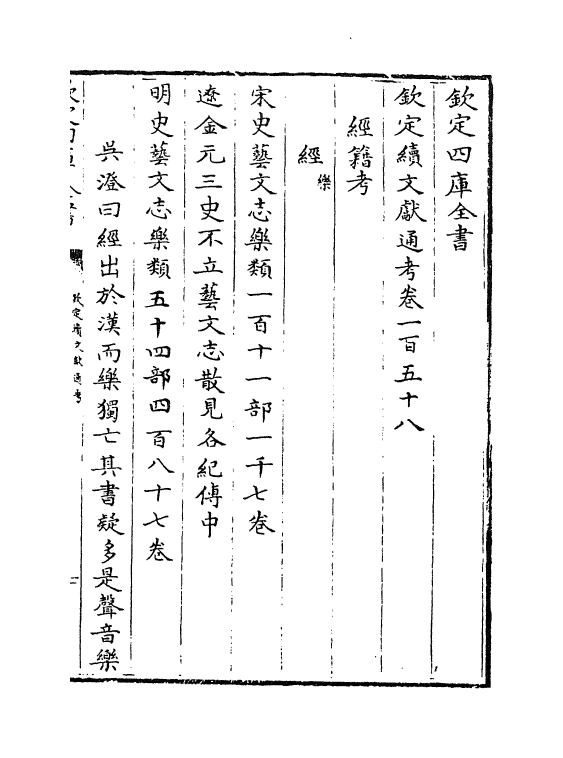 欽定四庫全書
欽定續文獻通考卷一百五十八
經籍考
經 樂
宋史藝文志樂類一百十一部一千七卷
遼金元三史不立藝文志散見各紀傳中
明史藝文志樂類五十四部四百八十七卷
吳澄曰經出於漢而樂獨亡其書疑多是聲音樂
欽定續文獻通考